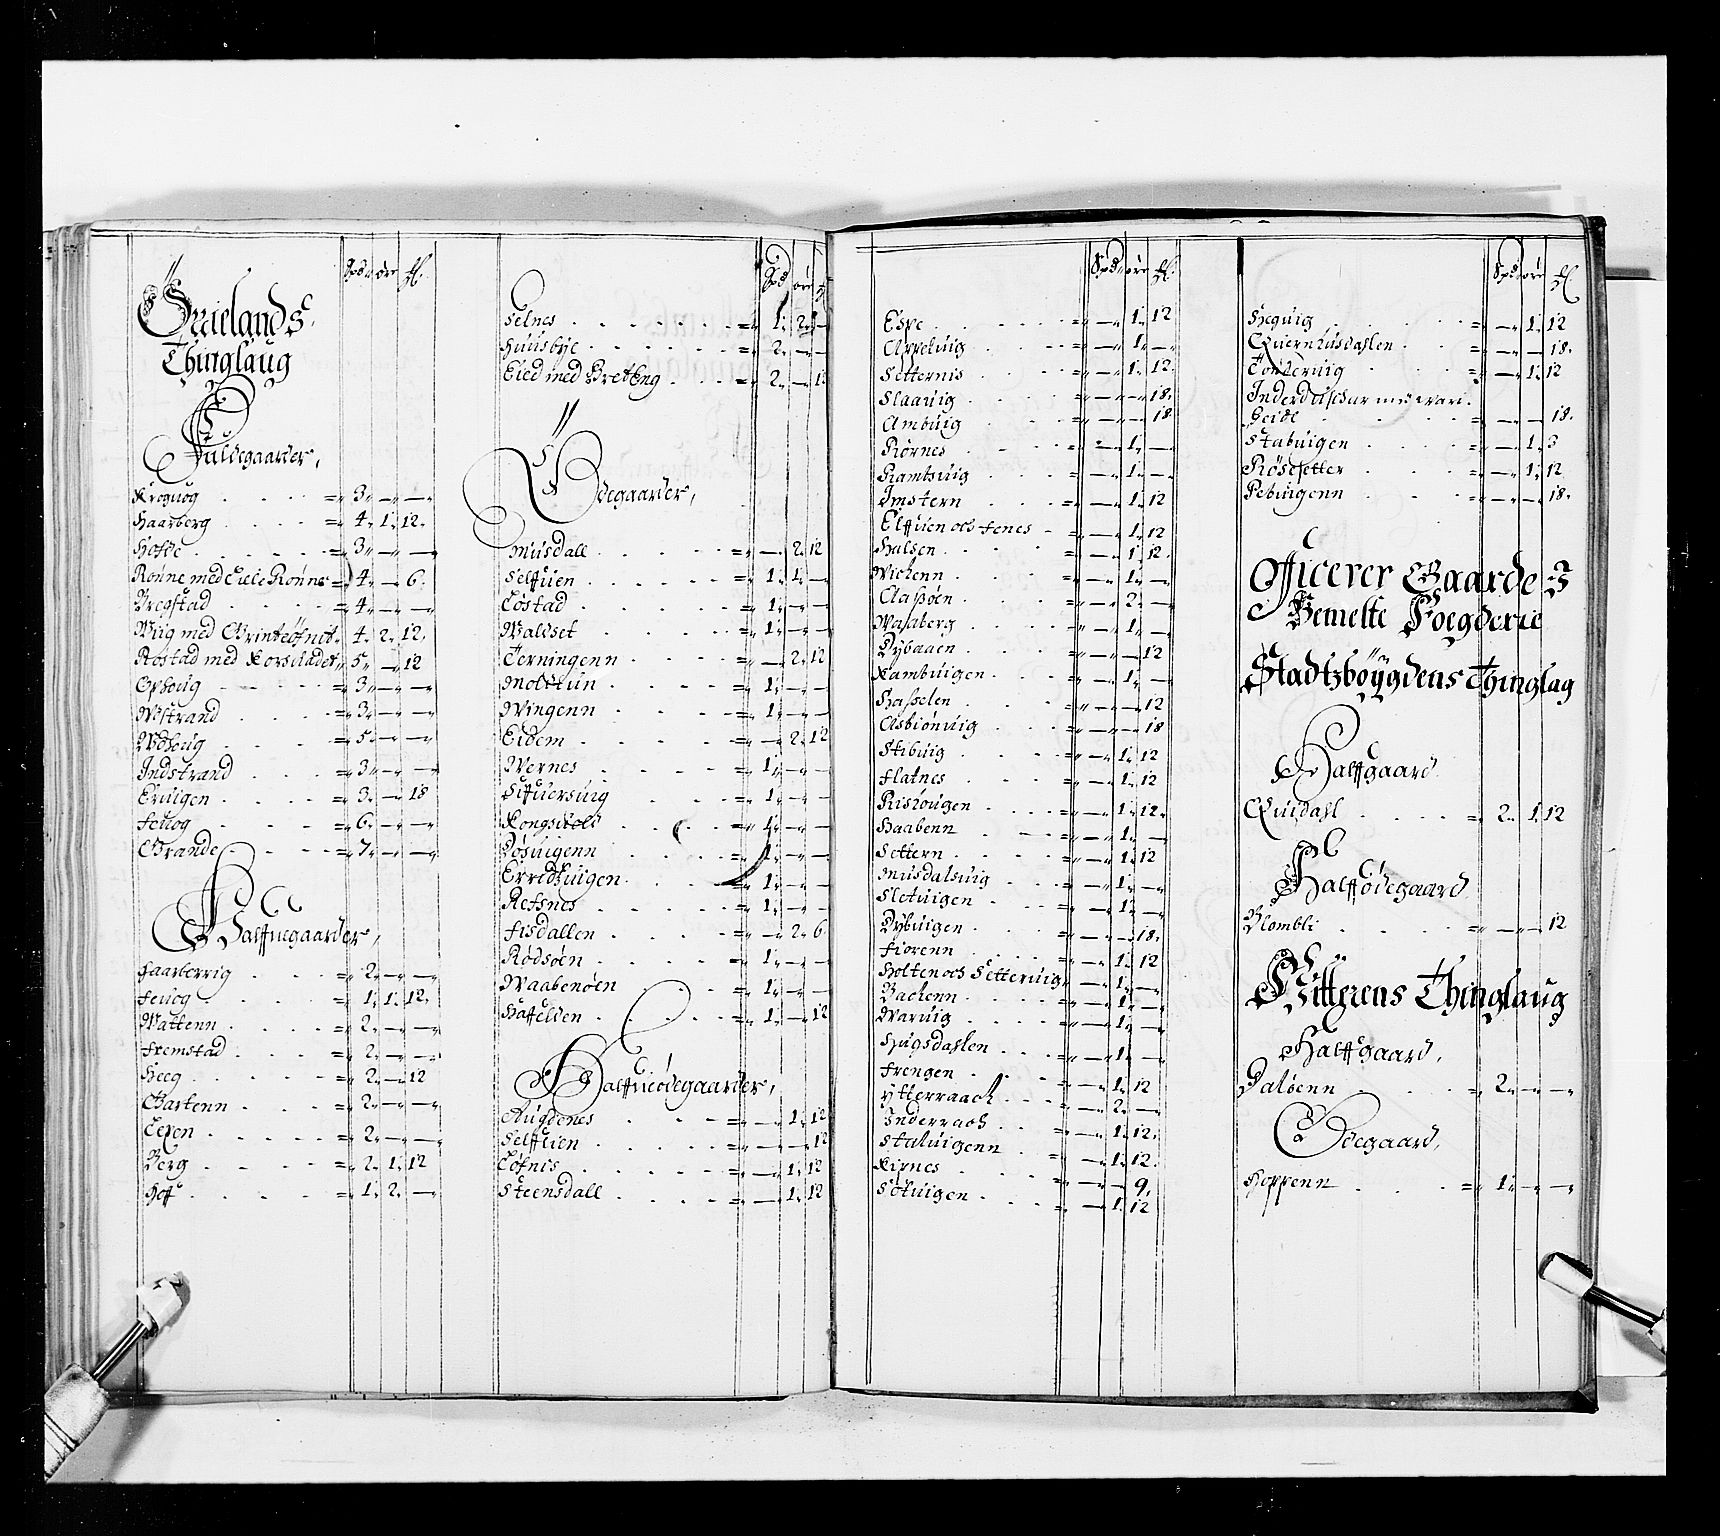 Spd ører ℔
Ørielands
Thinglaug
Fuldegaarder,
Kroguog = 3 — —
Haarberg = 4 1 12
Hofde = 3 — —
Rønne med Lille Rønne = 4 — 6
Bregstad = 4 — —
Wiig med Grinteøfnet 4 2 12
Røstad med Korsladet 5 — 12
Ophoug 3 — —
Wstrand = 3 — —
Wdhoug = 5 — —
Indstrand = 3 — —
Eruigen = 3 — 18
Feuog = 6 — —
Grande = 7 — —
Halfuegaarder,
Faarlerrig = 2 — —
Feuog = 1 1 12
Wattenn = 2 — —
Fremstad = 2 — —
Heeg = 2 — 12
Gartenn = 2 — —
Lexen = 2 — —
Berg = 2 1 12
Hoff = 1 2 —
Spd ører ℔
Selnes = 1 2 —
Huusbye = 2 — —
Eied med Bretteng = 2 — 12
Ødegaarder,
Musdall = — 2 12
Selfuen = 1 1 —
Løstad = 1 — —
Waldset = 1 — —
Terningenn = — 2 12
Moldtun = 1 — —
Wingenn = 1 — —
Eidem = — 2 12
Wernes = 1 — —
Sifuersuiig = 1 — —
Kongsuold = 1 — —
Døsuigenn = 1 — —
Erridsuigen = 1 — —
Refsnes = 1 — —
Fisdallen = — 2 6
Rødsøen = 1 — —
Waabenøen = 1 — —
Haffelden = 1 — 12
Halfueødegaarder,
Augdenes = — 1 12
Selfuen = — — 12
Løfnis = — 1 12
Steensdall = — 1 12
Spd ører ℔
Espe = — 1 12
Appeluig = — 1 —
Setternis = — 1 12
Slaauig = — — 18
Ambuig = — — 18
Rørnes = — 1 —
Ramsuig = — 1 —
Imstern = — 1 12
Elffuen och Fenes = — 1 12
Halsen = — 1 12
Wickenn = — 1 —
Claßøen = — 2 —
Wasberg = — 1 —
Dybaaen = — — 12
Kambuigen = — 1 —
Hasselen = — — 12
Asbiønuig = — — 18
Stibuig = — 1 12
Flatnes = — 1 12
Rishougen = — 1 12
Haabenn = — 1 —
Settern = — 1 12
Musdalsuig = — 1 —
Sletuigen = — 1 —
Dybuigen = — — 18
Fiorenn = — 1 12
Holten och Setteruig = — 1 —
Backenn = — 1 —
Waruig = — 1 —
Hugsdahlen = — 1 —
Frengen = — 1 12
Ytterraack = — 2 —
Inderraack = — 1 12
Staluigenn = — 1 12
Kirnes = — — 9
Søtuigen = — 1 12
Spd ører ℔
Heguig = — 1 12
Quernhusdahlen = — — 18
Tønderuig = — 1 12
Geide = — — 18
Stabuigen = — 1 3
Røsesetter = — 1 12
Pebuigenn = — — 18
Officerer Gaarde J
Bemelte Foegderie
Stadtzbøygdens Thinglag
Halffgaard
Quidahl = 2 1 12
Halffødegaard
Blombli = — — 12
Ritterens Thinglaug
Halffgaard,
Daløenn = 2 — —
Ødegaard,
Hoppenn = 1 — —